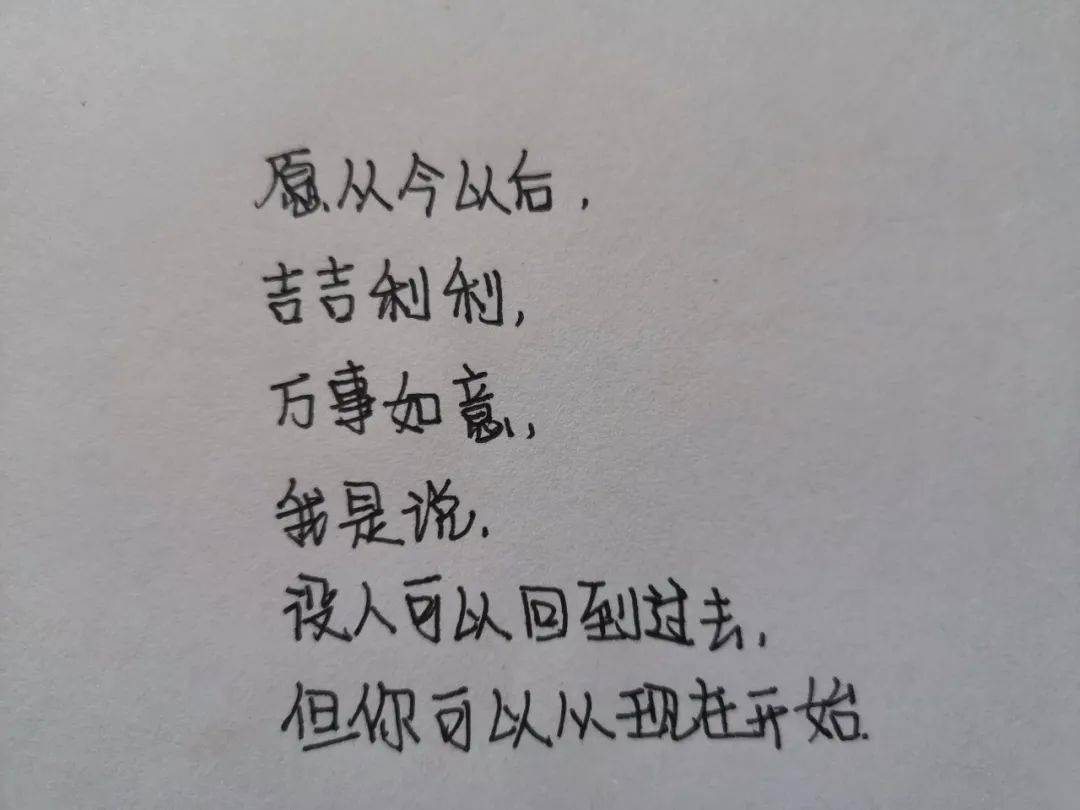 愿从今以后，
吉吉利利，
万事如意，
我是说．
没人可以回到过去，
但你可以从现在开始．